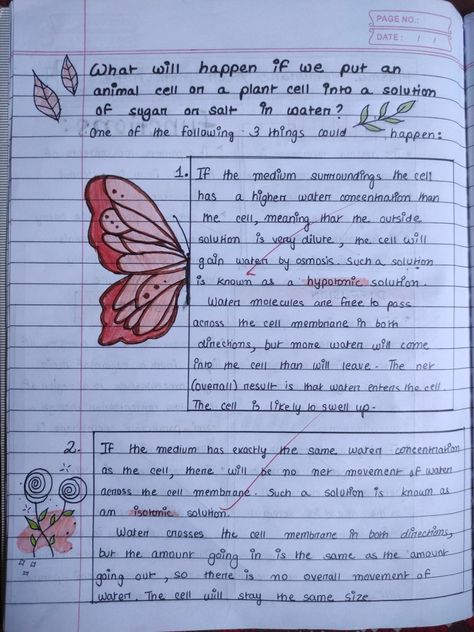 PAGE NO.:
DATE: / /
What will happen if we put an
animal cell or a plant cell into a solution
of sugar or salt in water?
One of the following 3 things could happen:
1. If the medium surroundings the cell
has a higher water concentration than
the cell, meaning that the outside
solution is very dilute, the cell will
gain water by osmosis. Such a solution
is known as a hypotonic solution.
Water molecules are free to pass
across the cell membrane in both
directions, but more water will come
into the cell than will leave. The net
(overall) result is that water enters the cell.
The cell is likely to swell up.
2. If the medium has exactly the same water concentration
as the cell, there will be no net movement of water
across the cell membrane. Such a solution is known as
an isotonic solution.
Water crosses the cell membrane in both directions,
but the amount going in is the same as the amount
going out, so there is no overall movement of
water. The cell will stay the same size